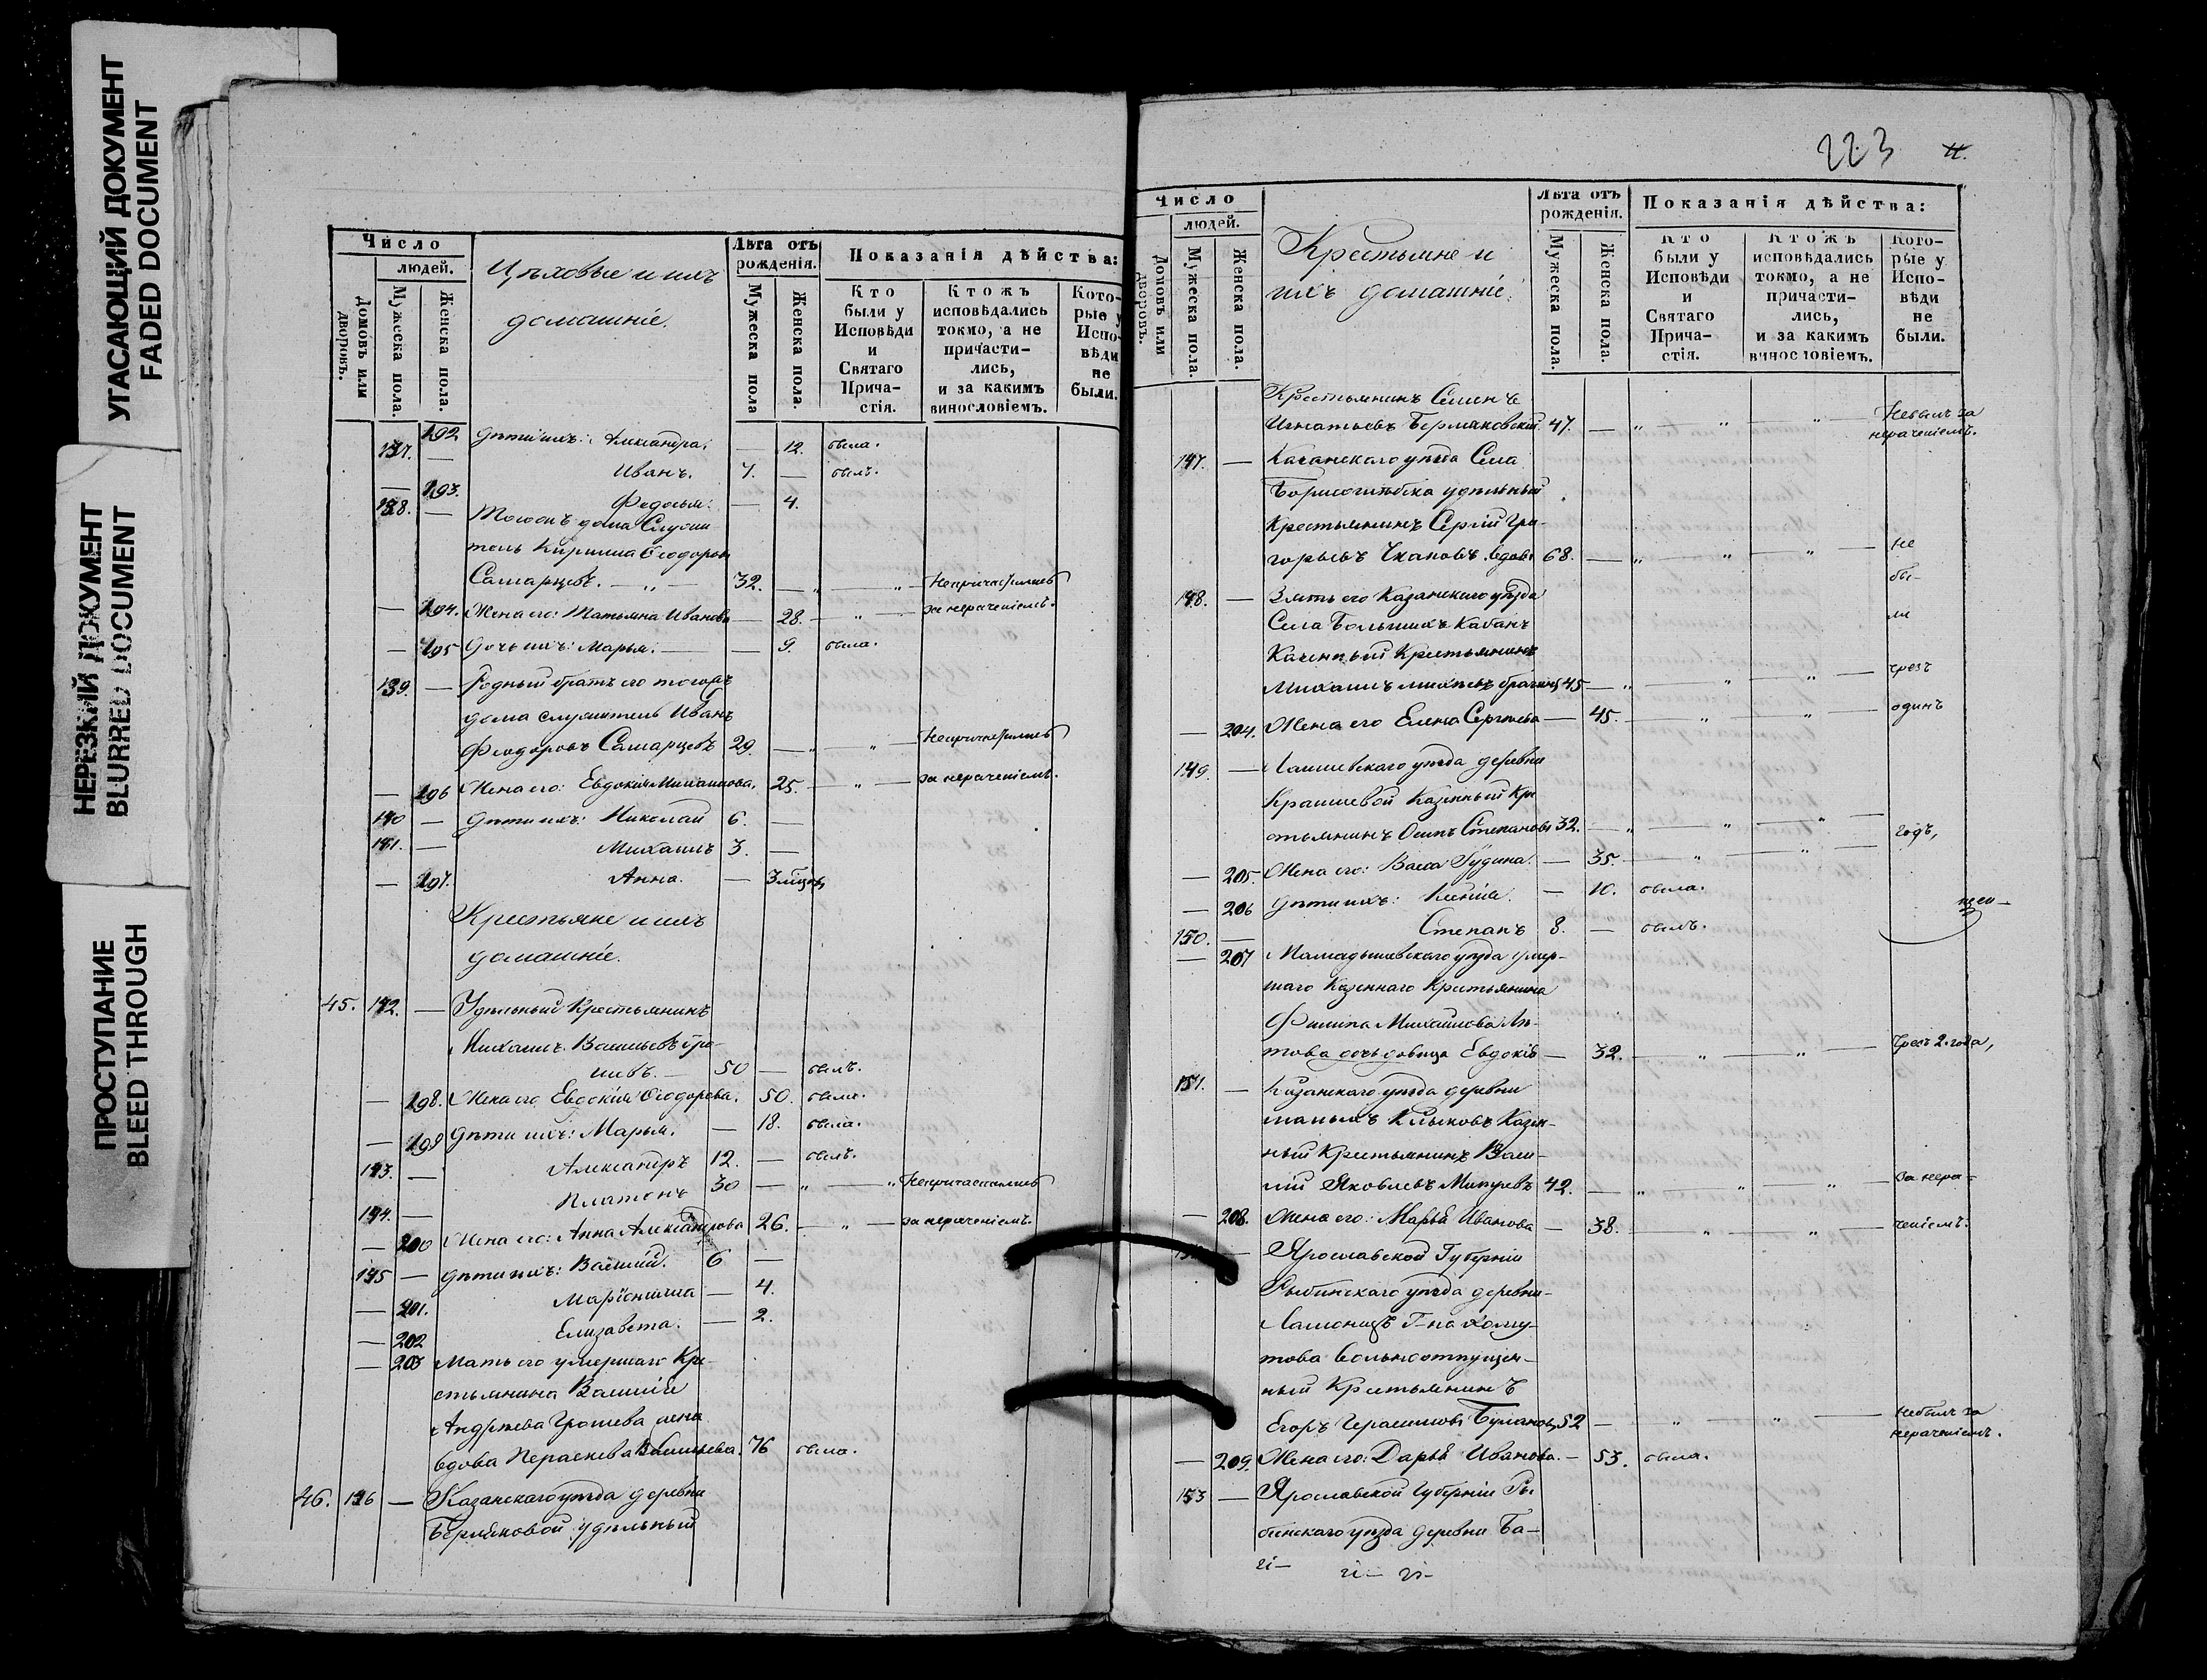 УГАСАЮЩИЙ ДОКУМЕНТ
FADED DOCUMENT
НЕРЕЗКИЙ ДОКУМЕНТ
BLURRED DOCUMENT
ПРОСТУПАНИЕ
BLEED THROUGH
Число
людей.
Домовъ или дворовъ.
Мужеска пола.
Женска пола.
Цѣховые и ихъ
домашніе.
Лѣта отъ рожденія.
Мужеска пола
Женска пола.
Показанія дѣйства:
Кто были у Исповѣди и Святаго Прича-стія.
Ктожъ исповѣдались токмо, а не причасти-лись, и за какимъ винословіемъ.
Кото-рые у Испо-вѣди не были.
192 Дѣти ихъ: Александра. — 12. была.
137. — Иванъ. 7. — былъ.
— 193. Федосья. — 4.
138. — Тогожъ дома Служи-
тель Кирилла Ѳеодоровъ
Самарцевъ. — 32. — Непричастились
— 194. Жена его: Татьяна Иванова — 28. — за нераченіемъ.
— 195 Дочь ихъ: Марья. — 9. была.
139. — Родный братъ его тогожъ
дома служитель Иванъ
Феодоровъ Самарцевъ 29. — Непричастились
— 196 Жена его: Евдокія Михаилова. 25. — за нераченіемъ.
140 — Дѣти ихъ: Николай 6. —
141. — Михаилъ 3. —
— 197. Анна. —
Крестьяне и ихъ
домашніе.
45. 142. — Удѣльный Крестьянинъ
Михаилъ Васильевъ Гро-
шевъ. — 50 — былъ.
— 198. Жена его Евдокія Ѳеодорова. 50. была.
— 199 Дѣти ихъ: Марья. — 18. была.
143. — Александръ 12. — былъ.
144. — Платонъ 30 — Непричастились
— 200 Жена его: Анна Александрова 26. — за нераченіемъ.
145 — Дѣти ихъ: Василій. 6 —
— 201. Маріонилла — 4.
— 202 Елизавета. — 2.
— 203 Мать его умершаго Кре-
стьянина Василія
Андреева Грошева жена
вдова Параскева Васильева. 76 была.
46. 146 — Казанскаго уѣзда деревни
Бермяковой удѣльный
223
Число
людей.
Домовъ или дворовъ.
Мужеска пола.
Женска пола.
Крестьяне и
ихъ домашніе.
Лѣта отъ рожденія.
Мужеска пола.
Женска пола.
Показанія дѣйства:
Кто были у Исповѣди и Святаго Прича-стія.
Ктожъ исповѣдались токмо, а не причасти-лись, и за какимъ винословіемъ.
Кото-рые у Испо-вѣди не были.
Крестьянинъ Семенъ
Игнатьевъ Бермяковскій 47. — Небылъ за
нераченіемъ.
147. — Казанскаго уѣзда Села
Борисоглѣбска удѣльный
Крестьянинъ Сергій Гри-
горьевъ Чкаловъ вдовъ 68. — не
бы-
148. — Зять его Казанскаго уѣзда
Села Большихъ Кабанъ ли
Казенный Крестьянинъ
Михаилъ 45 — чрезъ
— 204. Жена его Елена Сергѣева — 45. — одинъ
149. — Лаишевскаго уѣзда деревни
Казенный Кре-
стьянинъ Осипъ Степановъ 32. — годъ,
— 205. Жена его: Васса — 35.
— 206 Дѣти ихъ: Ксенія. — 10. была.
150. — Степанъ 8. — былъ.
— 207 Мамадышевскаго уѣзда умер-
шаго Казеннаго Крестьянина
Филипа Михаилова
дочь девица Евдокія — 32. — чрезъ 2. года,
151. — Казанскаго уѣзда деревни
малыхъ Клыковъ Казен-
ный Крестьянинъ Васи-
лій Яковлевъ 42. — за нера-
— 208. Жена его: Марья Иванова — 38. — ченіемъ.
— Ярославской Губерніи
Рыбинскаго уѣзда деревни
Г-на Хому-
това вольноотпущен-
ный Крестьянинъ
Егоръ Герасимовъ 52 — небылъ за
нераченіемъ.
— 209. Жена его: Дарья Иванова. — 53. была.
153 — Ярославской Губерніи Ры-
бинскаго уѣзда деревни Ба-